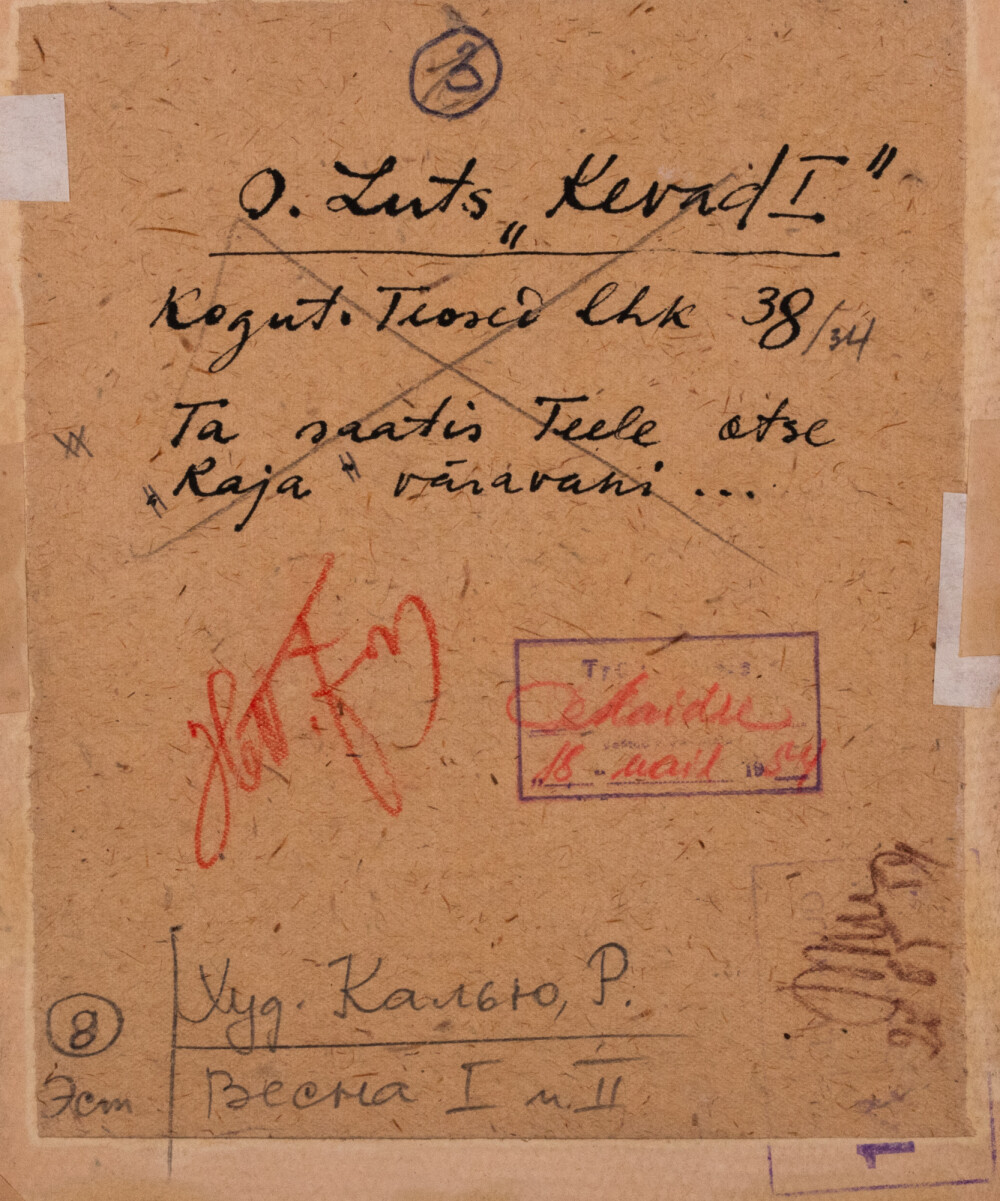 O. Luts „Kevad I"
Kogut. Teosed lhk 38/34
Ta saatis Teele otse
"Raja" väravani ...
18 - mail 1954
8
Худ. Кальо, Р.
Эст
Весна I и II
1